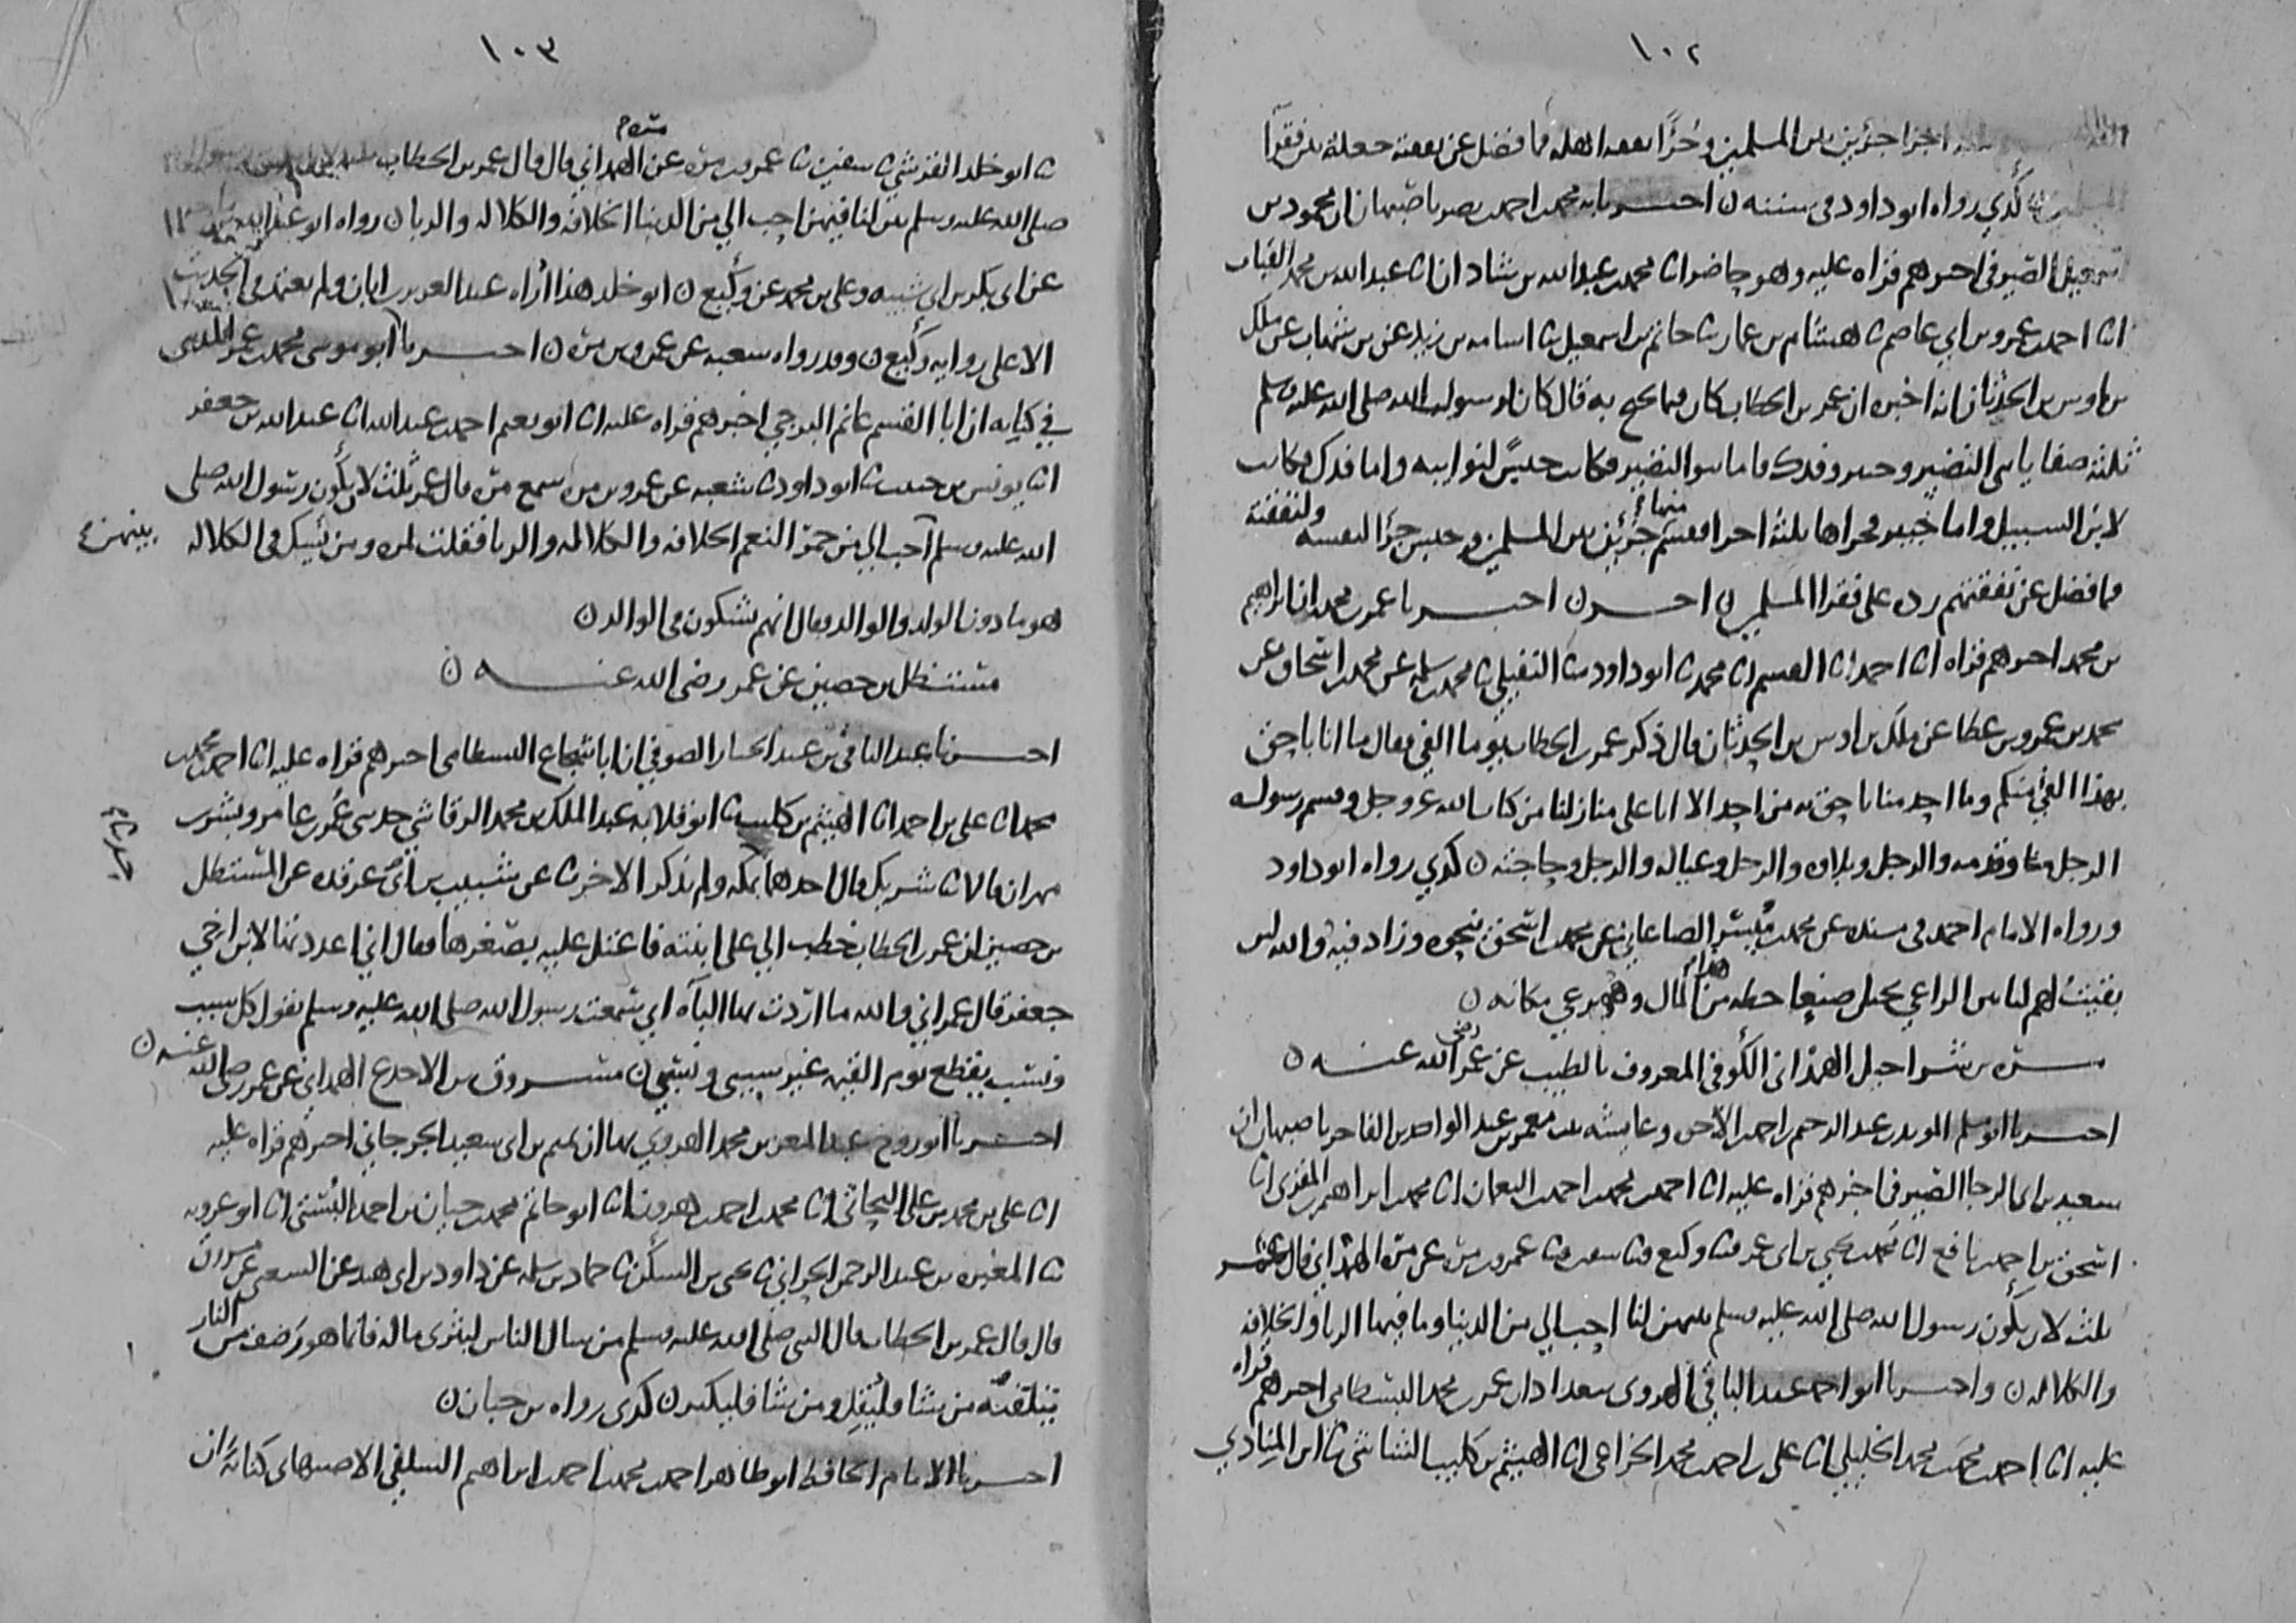 ١٠٢
اجزا جزئين بين المسلمين وجزءا نفقه اهله فما فضل عن نفقته جعله بين فقرآ
كذي رواه ابو داود في سننه ن اخبرنا محمد بن احمد بن نصر باصبهان ان محمود بن
اسمعيل الصيرفي اخبرهم قراه عليه وهو حاضر انا محمد بن عبد الله بن شاذان انا عبد الله بن محمد القباب
انا احمد بن عمرو بن ابي عاصم ثنا هشام بن عمار ثنا حاتم بن اسمعيل ثنا اسامه بن زيد عن بن شهاب عن ملك
بن اوس بن الحدثان انه اخبره ان عمر بن الخطاب كان فيما يحتج به قال كان لرسول الله صلى الله عليه وسلم
ثلثه صفايا بني النضير وخيبر وفدك فاما بنو النضير فكانت حبسًا لنوايبه واما فدك فكانت
لابن السبيل واما خيبر فجزاها ثلثه اجزا فقسم منها جزئين بين المسلمين وحبس جزءا لنفسه ولنفقته
فما فضل عن نفقتهم رده على فقرا المسلمين ن اخر ن اخبرنا عمر بن محمد ان ابراهيم
بن محمد اخبرهم قراه انا احمد انا القسم انا محمد ثنا ابو داود ثنا النفيلي ثنا محمد بن سلمه عن محمد بن اسحاق عن
محمد بن عمرو بن عطا عن ملك بن اوس بن الحدثان قال ذكر عمر بن الخطاب يوما الفي فقال ما انا باحق
بهذا الفي منكم وما احد منا باحق به من احد الا انا على منازلنا من كتاب الله عز وجل وقسم رسوله
الرجل وقدمه والرجل وبلاوه والرجل وعياله والرجل وحاجته ن كذي رواه ابو داود
ورواه الامام احمد في مسنده عن محمد بن مُيسّر الصاغاني عن محمد بن اسحق نحوه وزاد فيه والله لين
بقيتُ لهم لياتين الراعي بجبل صنعا حظه من هذا المال وهو يرعى مكانه ن
مره بن شراحيل الهمذاني الكوفي المعروف بالطيب عن عمر رضي الله عنه ن
اخبرنا ابو مسلم المويد بن عبد الرحيم بن احمد بن الاخوه وعايشه بنت معمر بن عبد الواحد بن الفاخر باصبهان ان
سعيد بن ابي الرجا الصيرفي اخبرهم قراه عليه انا احمد بن محمد بن احمد بن النعمان انا محمد بن ابراهيم بن المقري انا
اسحق بن احمد بن نافع انا محمد بن يحيى بن ابي عمر ثنا وكيع ثنا سفين ثنا عمرو بن مره عن مره الهمذاني قال قال عمر
ثلث لان يكون رسول الله صلى الله عليه وسلم بينهن لنا احب الي من الدنيا وما فيها الربا والخلافه
والكلاله ن واخبرنا ابو احمد عبد الباقي الهروي ببغداد ان عمر بن محمد البسطامي اخبرهم قراه
عليه انا احمد بن محمد بن محمد الخليلي انا علي بن احمد بن محمد الخزاعي انا الهيثم بن كليب الشاشي ثنا ابن المنادي
١٠٣
ثنا ابو خلد القرشي ثنا سفين ثنا عمرو بن مره عن مره الهمداني قال قال عمر بن الخطاب
صلى الله عليه وسلم بين لنا فيهن احب الي من الدنيا الخلافه والكلاله والربا ن رواه ابو عبد الله
عن ابي بكر بن ابي شيبه وعلي بن محمد عن وكيع ن ابو خلد هذا اُراه عبد العزيز بن ابان ولم يعتمد في الحديث
الا على روايه وكيع ن وقد رواه شعبه عن عمرو بن مره ن اخبرنا ابو موسى محمد بن عمر المديني
في كتابه ان ابا القسم غانم البرجي اخبرهم قراه عليه انا ابو نعيم احمد بن عبد الله انا عبد الله بن جعفر
انا يونس بن حبيب ثنا ابو داود ثنا شعبه عن عمرو بن مره سمع مره قال قال عمر ثلث لان يكون رسول الله صلى
الله عليه وسلم بينهن احب الي من حمر النعم الخلافه والكلاله والربا فقلت لمره ومن يشك في الكلاله
هو ما دون الولد والوالد فقال انهم يشكون في الوالد ن
مستظل بن حصين عن عمر رضي الله عنه ن
اخبرنا عبد الباقي بن عبد الجبار الصوفي ان ابا شجاع البسطامي اخبرهم قراه عليه انا احمد بن محمد بن
محمد انا علي بن احمد انا الهيثم بن كليب ثنا ابو قلابه عبد الملك بن محمد الرقاشي حدثني عُمر بن عامر وبشر بن
مهران قالا ثنا شريك قال احدهما بمكه ولم يذكر الاخر ثنا عن شبيب بن غرقده عن المستظل
بن حصين ان عمر بن الخطاب خطب الي علي ابنته فاعتل عليه بصغرها فقال اني اعددتها لابن اخي
جعفر قال عمر اني والله ما اردت بها الباه اني سمعت رسول الله صلى الله عليه وسلم يقول كل سبب
ونسب ينقطع يوم القيمه غير سببي ونسبي ن مسروق بن الاجدع الهمداني عن عمر رضي الله عنه ن
اخبرنا ابو روح عبد المعز بن محمد الهروي بها ان تميم بن ابي سعيد الجرجاني اخبرهم قراه عليه
انا علي بن محمد بن علي البحاثي انا محمد بن احمد بن هرون انا ابو حاتم محمد بن حبان بن احمد البُستي انا ابو عروبه
ثنا المغيره بن عبد الرحمن الحراني ثنا يحيى بن السكن ثنا حماد بن سلمه عن داود بن ابي هند عن الشعبي عن مسروق
قال قال عمر بن الخطاب قال النبي صلى الله عليه وسلم من سال الناس ليثري ماله فانما هو رضف من النار
يتلقفه من شا فليُقِل ومن شا فليكثر ن كذي رواه بن حبان ن
اخبرنا الامام الحافظ ابو طاهر احمد بن محمد بن احمد بن ابراهيم السلفي الاصبهاني كتابةً ان